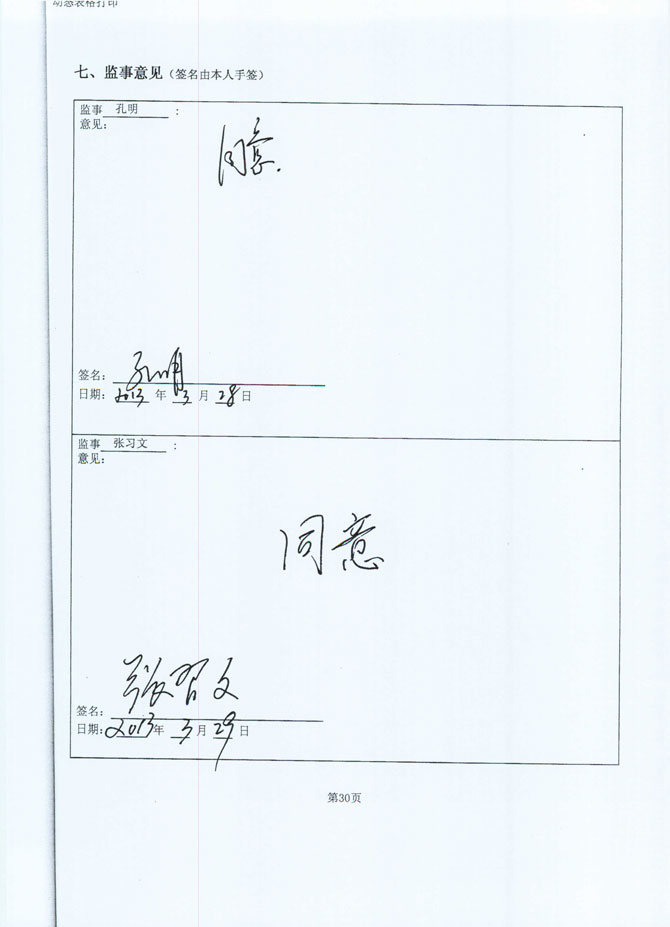 动态表格打印
七、监事意见（签名由本人手签）
监事 孔明 ：
意见：
同意.
签名： 孔明
日期：2013 年 3 月 28 日
监事 张习文 ：
意见：
同意
签名： 张习文
日期：2013 年 3 月 29 日
第30页